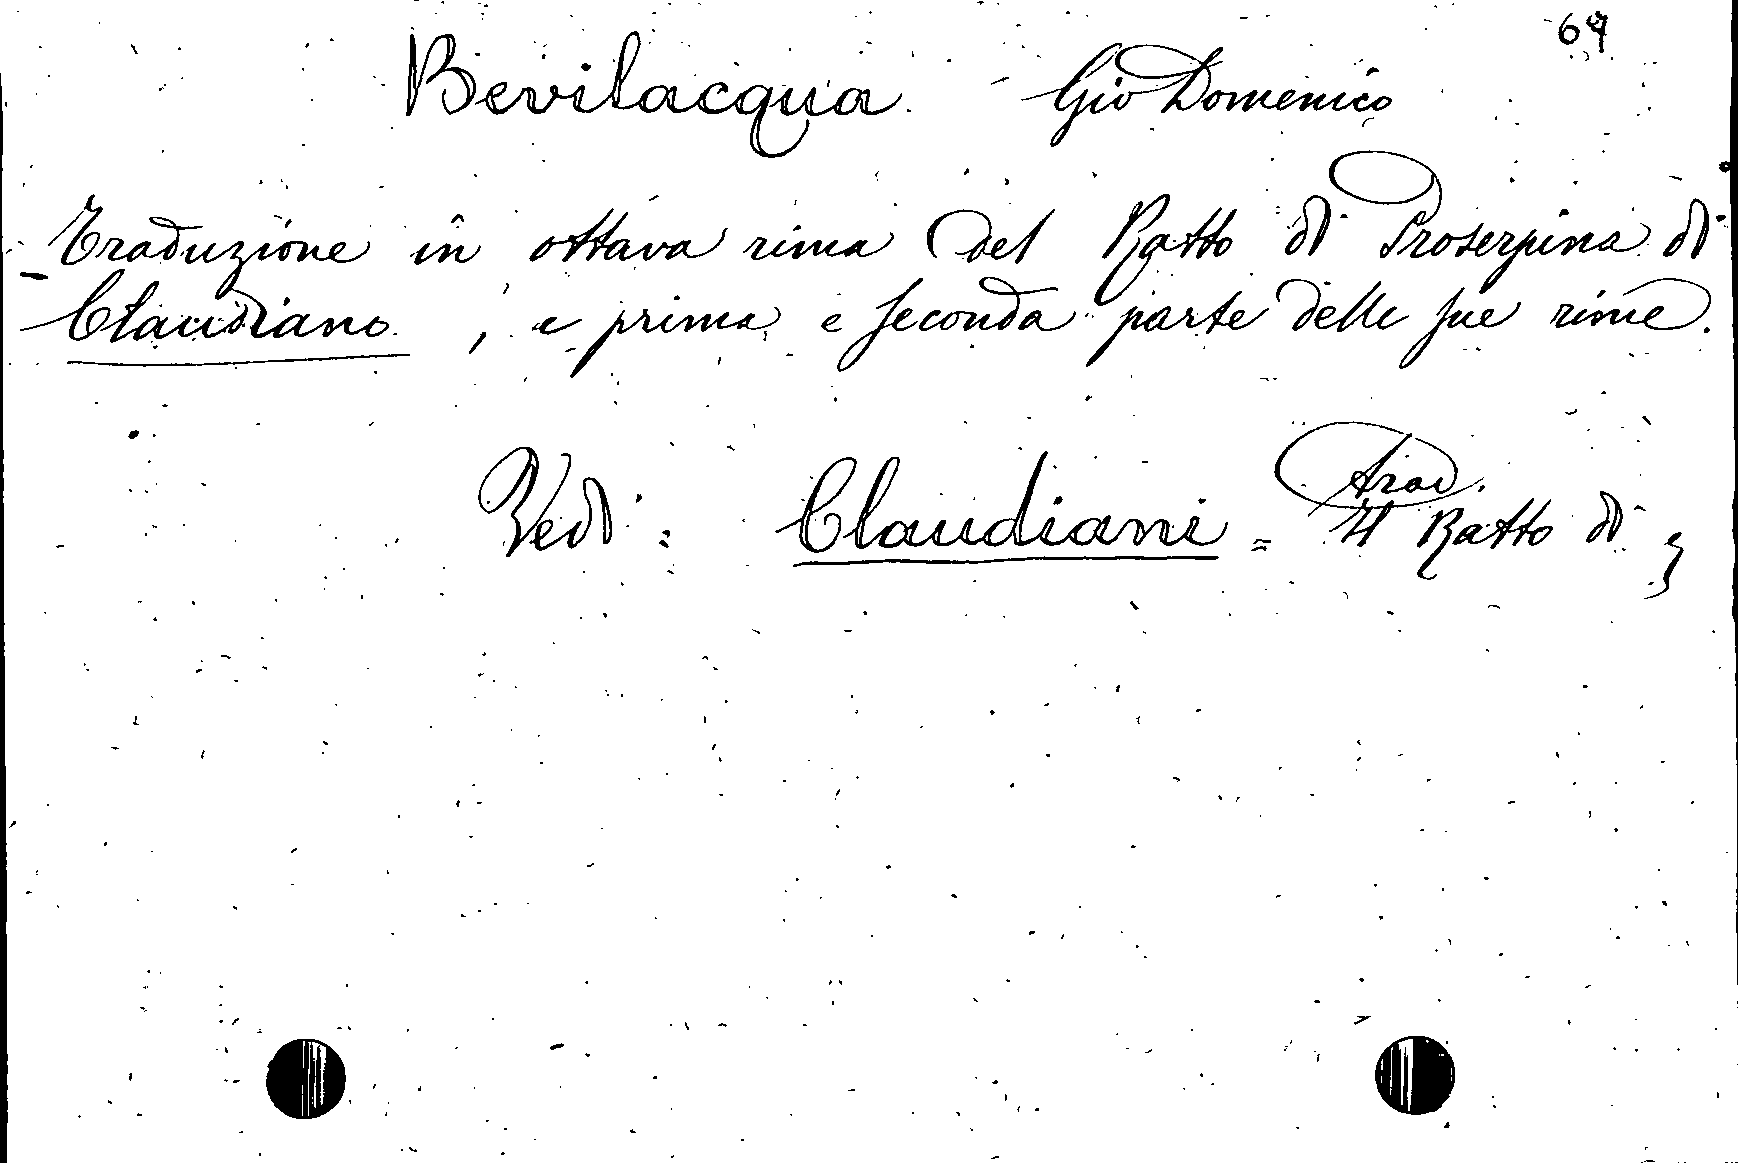 67
Bevilacqua Gio Domenico
Traduzione in ottava rima del Ratto di Proserpina di
Claudiano, e prima e seconda parte delle sue rime.
Vedi: Claudiani = Il Ratto di